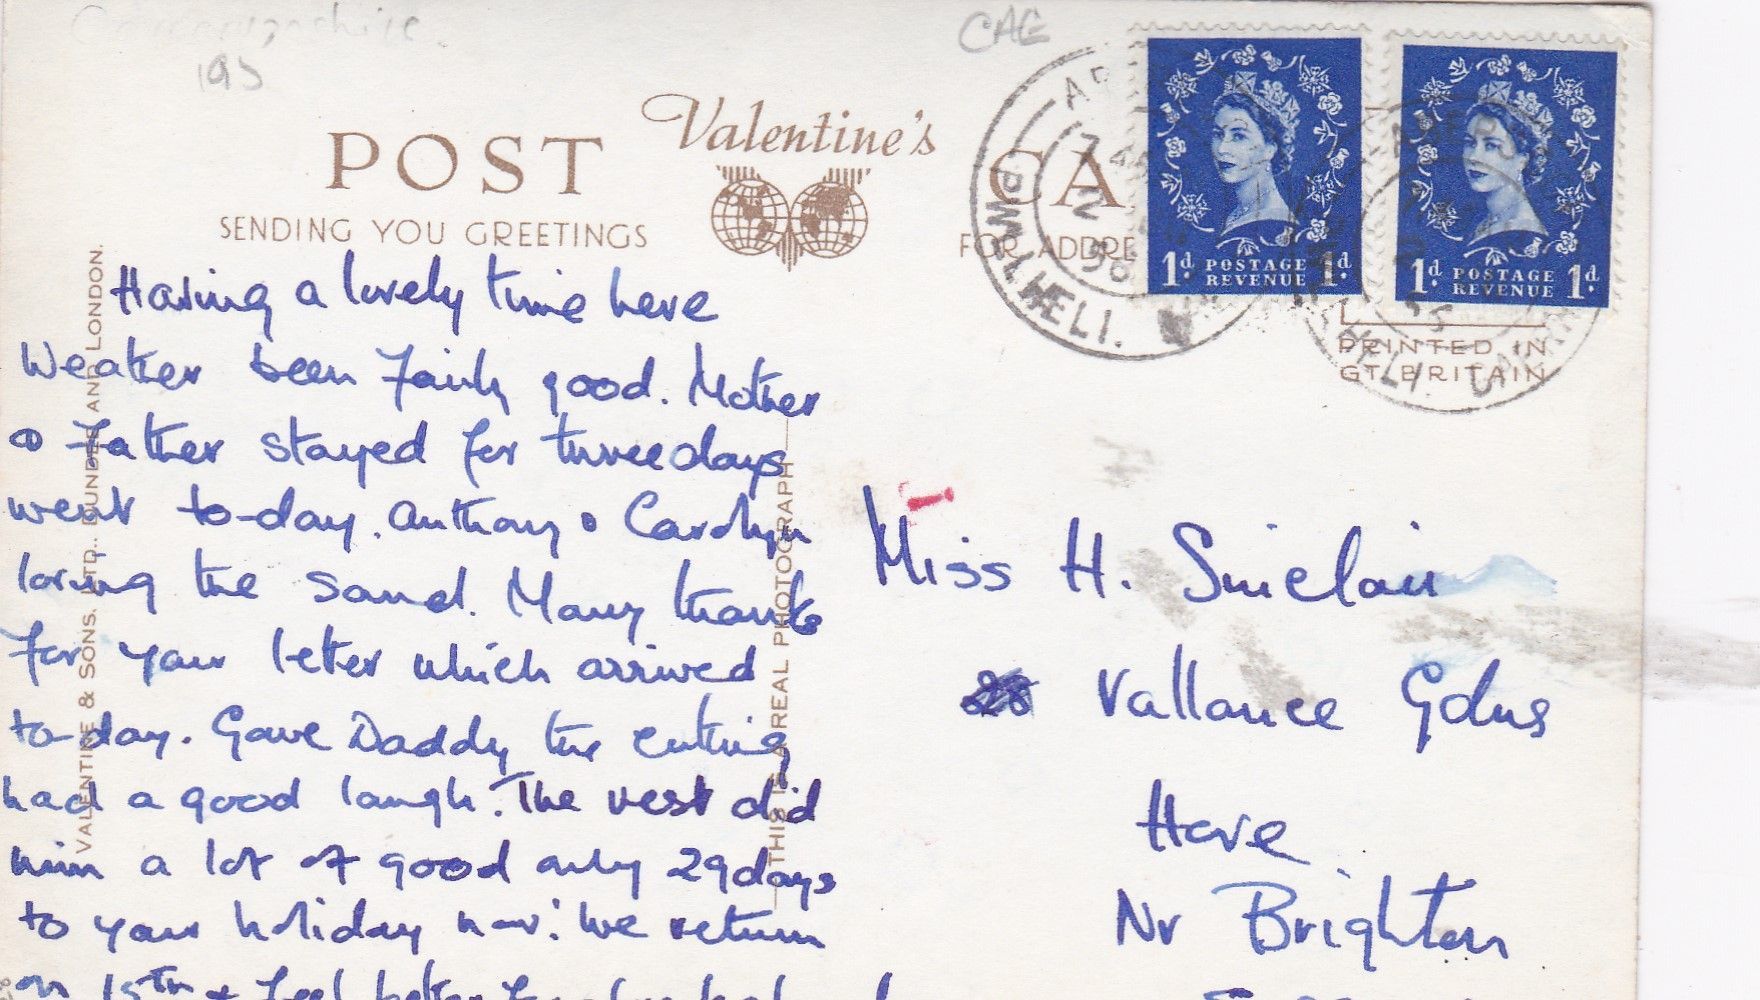 Caernarvonshire.
195
CAE
POST
Valentine's
CA
SENDING YOU GREETINGS
FOR ADDRE
PWLLHELI.
1d. POSTAGE REVENUE 1d.
1d. POSTAGE REVENUE 1d.
PRINTED IN
GT. BRITAIN
VALENTINE & SONS. LTD., DUNDEE AND LONDON.
THIS IS A REAL PHOTOGRAPH
Having a lovely time here
Weather been fairly good. Mother
& Father stayed for three days
went to-day. Anthony & Carolyn
loving the sand. Many thanks
for your letter which arrived
to-day. Gave Daddy the cutting
had a good laugh. The rest did
him a lot of good only 29 days
to your holiday now! We return
on 15th & feel better for
Miss H. Sinclair
28 Vallance Gdns
Hove
Nr Brighton